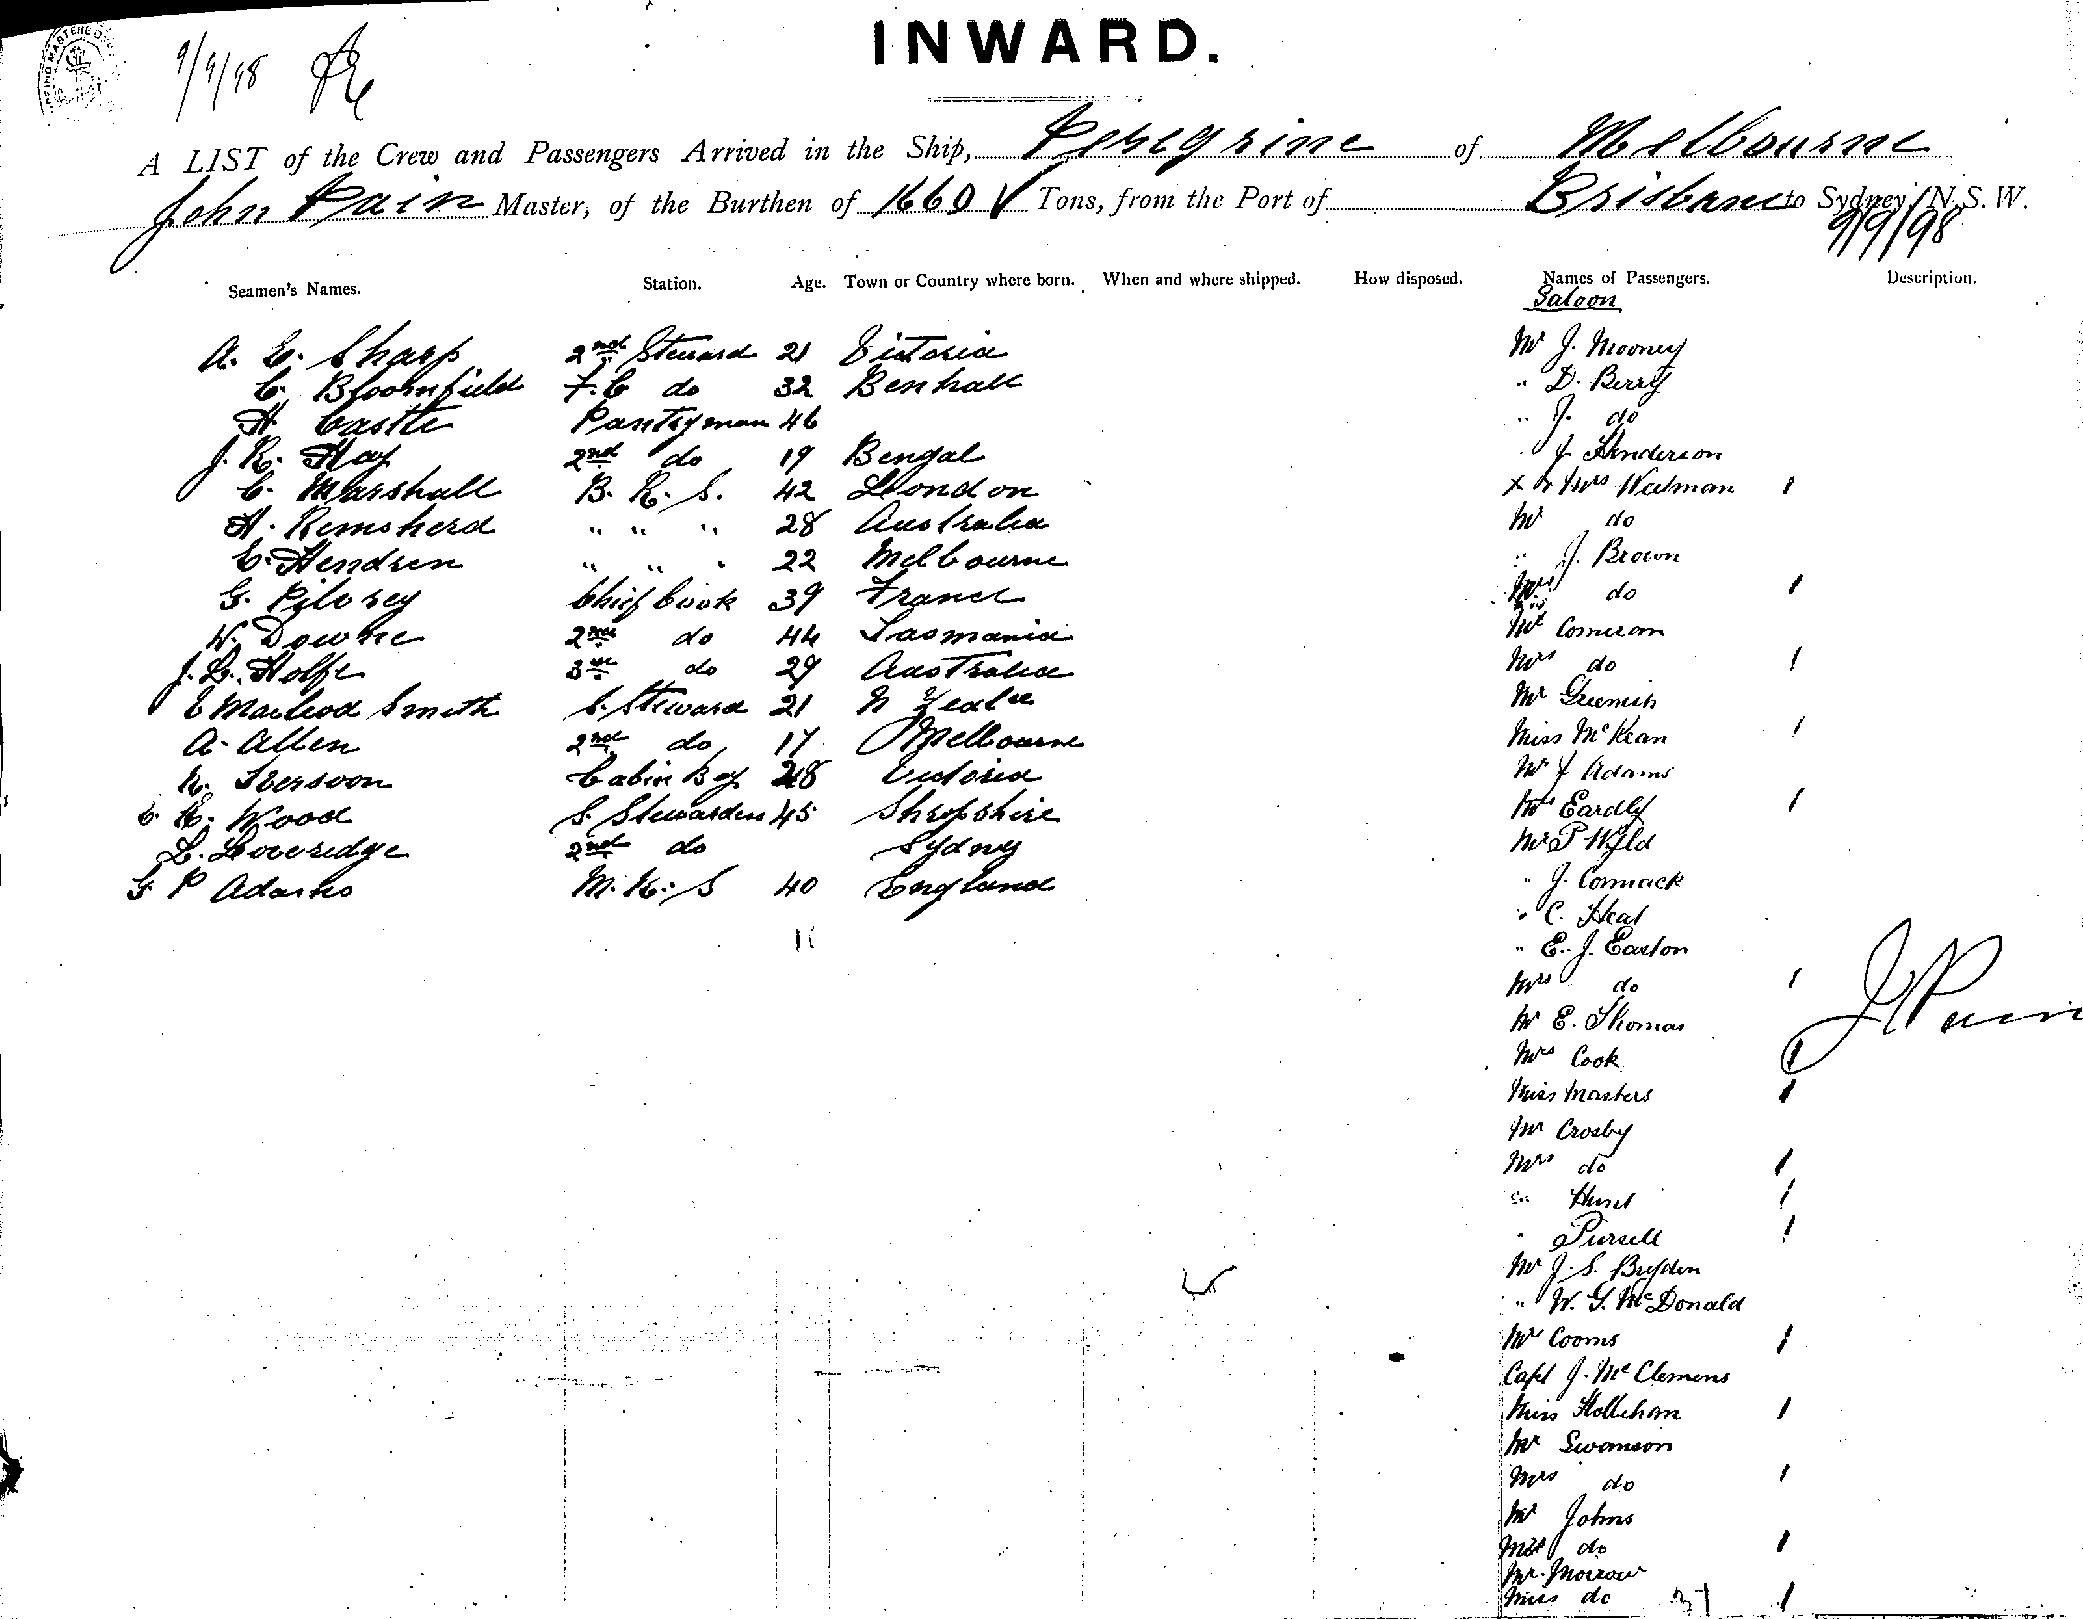 INWARD.
9/9/98
A LIST of the Crew and Passengers Arrived in the Ship, Peregrine of Melbourne
John Pain Master, of the Burthen of 1660 Tons, from the Port of Brisbane to Sydney, N.S.W.
9/9/98
Seamen's Names. Station. Age. Town or Country where born. When and where shipped. How disposed. Names of Passengers. Description.
Saloon
A. E. Sharp 2nd Steward 21 Victoria Mr J. Mooney
C. Bloomfield F.C do 32 Benhall " D. Berry
H Castle Pantryman 46 " J. do
J. R. Hay 2nd do 19 Bengal J Henderson
C. Marshall B. R. S. 42 London Mrs Watman
H. " " " 28 Australia Mr do
C. Hendren " " " 22 Melbourne " J. Brown
G. Chief Cook 39 France Mrs do
W. Downe 2nd do 44 Tasmania Mr Cameron
J. L. Holfe 3rd do 29 Australia Mrs do
E Macleod Smith S. Steward 21 N Zeal Mr
A. Allen 2nd do 17 Melbourne Miss McKean
Cabin Boy Victoria Mr J Adams
E. K. Wood S. Stewardess 45 Shropshire Mrs Eardly
L. Loveridge 2nd do Sydney Mr P Wyld
G P Adams M. R. S 40 England " J. Cormack
" C. Heal
" E. J. Easton
Mrs do
Mr E. Thomas
Mrs Cook
Miss Masters
Mr Crosby
Mrs do
Hunt
" Pursell
Mr J. S. Bryden
" W. G. McDonald
Cooms
Capt J. McClemens
Miss Hollehan
Mr Swanson
Mrs do
Mr Johns
do
Mr. Morrow
Miss do
J Pain